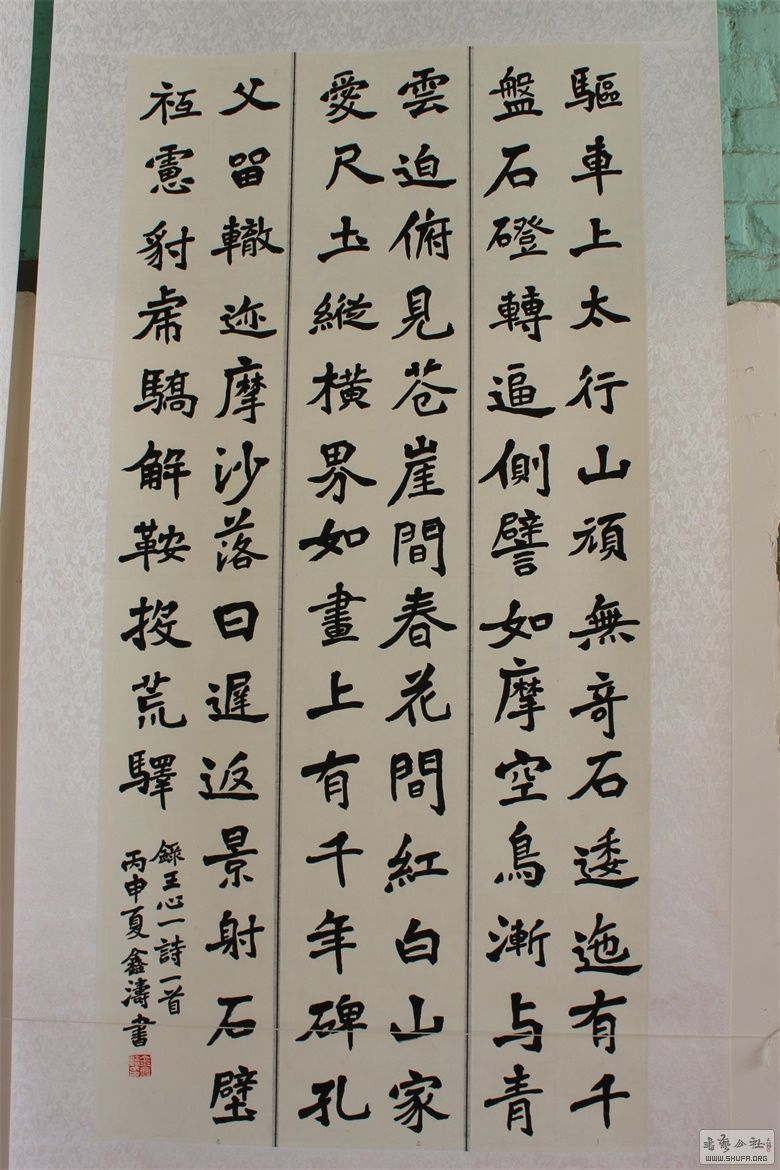 驅車上太行山頑無奇石逶迤有千
盤石磴轉逼側譬如摩空鳥漸与青
雲迫俯見蒼崖間春花間紅白山家
愛尺土縱橫界如畫上有千年碑孔
父留轍迹摩沙落日遲返景射石壁
祗慮豺虎驕解鞍投荒驛
錄王心一詩一首
丙申夏鑫濤書
書藝公社
WWW.SHUFA.ORG